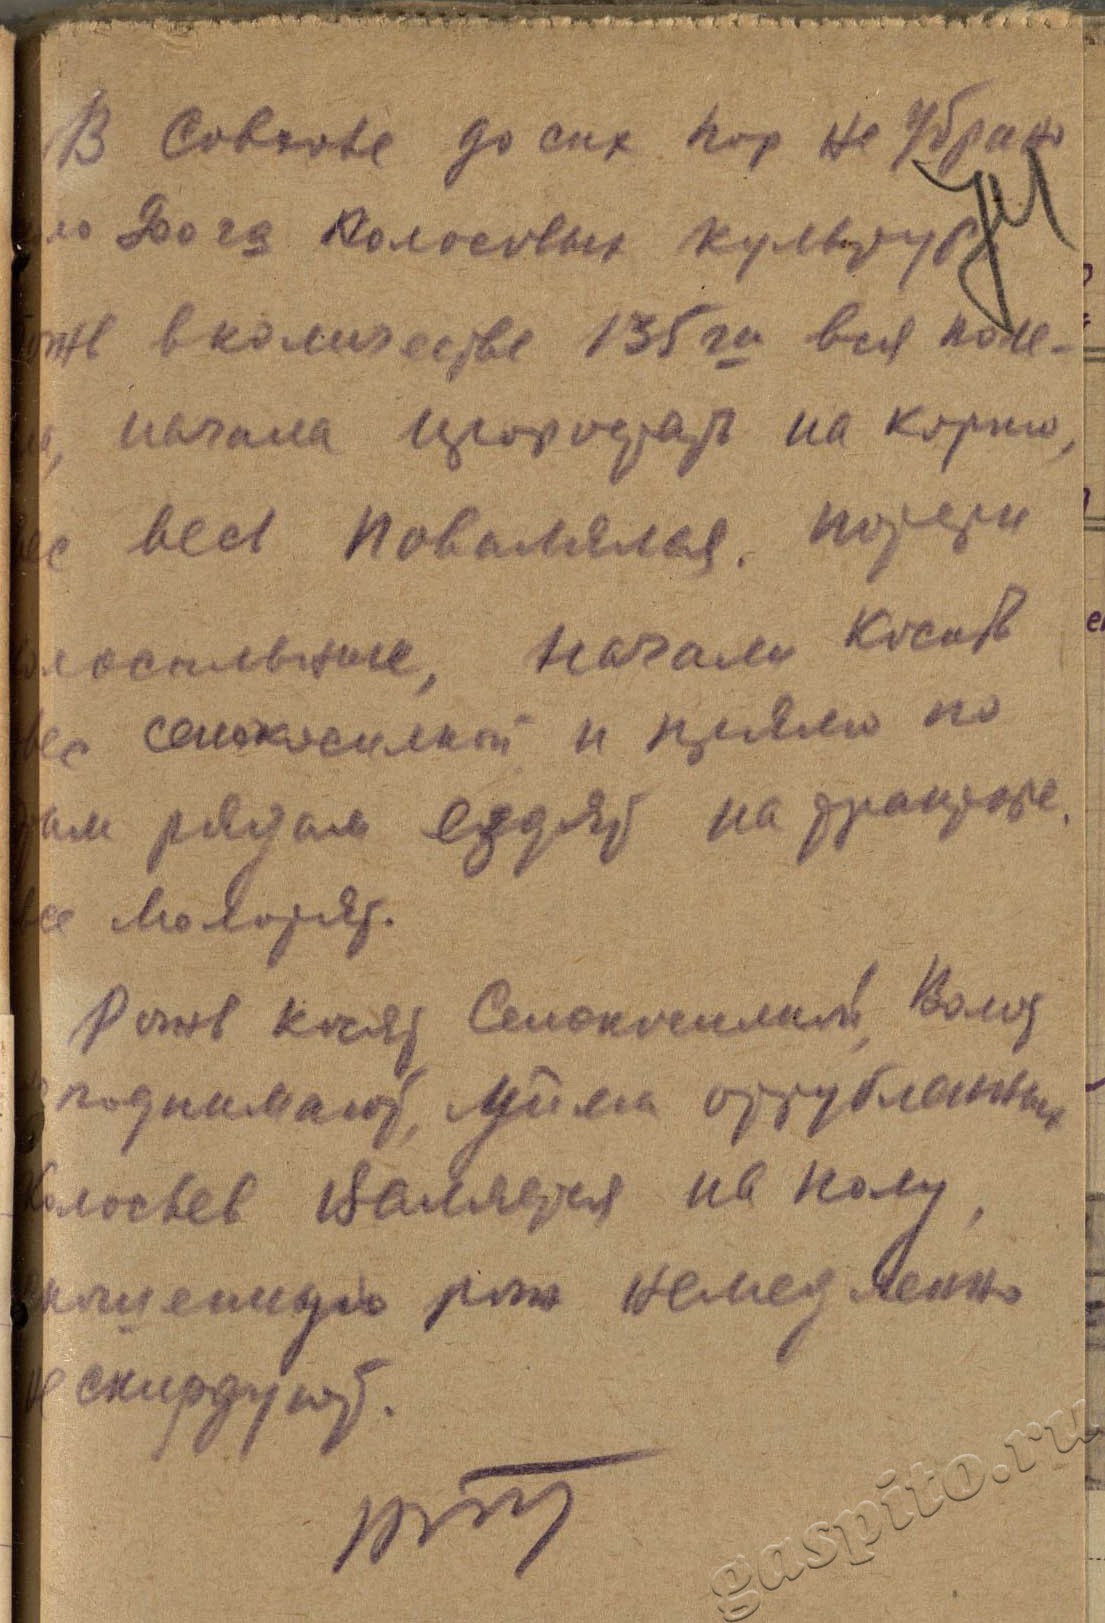 В Совхозе до сих пор не Убрано
200 га Колосовых культур
рожь в количестве 135 га вся поле-
начала прорастать на корню,
весь Повалялся. потери
колоссальные, начали Косить
овес сенокосилкой и прямо по
рядам ездят на тракторе.
все молотят.
Рожь косят Сенокосилкой, Колос
поднимают, отрубленных
Колосьев Валяется на полу,
скошенную рожь немедленно
не скирдуют.
gaspito.ru